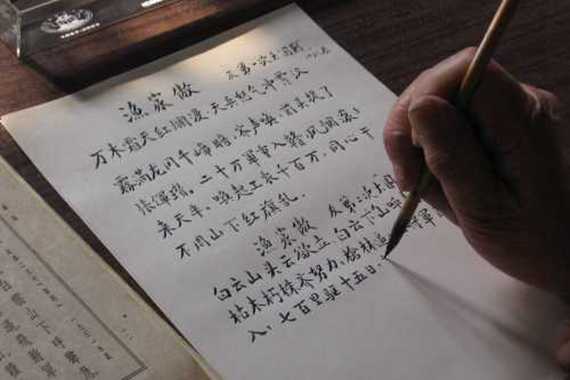 漁家傲 反第一次大围剿
万木霜天红烂漫,天兵怒气冲霄汉
雾满龙冈千嶂暗,齐声唤,前头捉了
张辉瓒。二十万军重入赣,风烟滚滚
来天半。唤起工农千百万,同心干
不周山下红旗乱。
渔家傲 反第二次大围
白云山头云欲立,白云下山呼
枯木朽株齐努力,枪林逼 将军
入。七百里驱十五日,